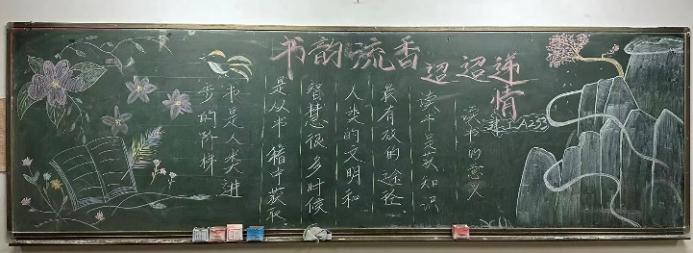 书韵流香 迢迢递情
读书的意义
读书是获知识
最有效的途径
人类的文明和
智慧很多时候
是从书籍中获取
书是人类进
步的阶梯